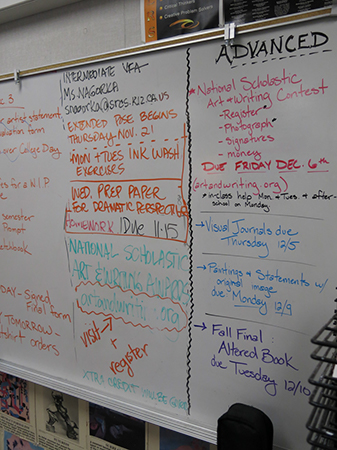 e 3
artist statement,
form
over College Day
es for a W.I.P
semester
Prompt
tchbook
DAY - Signed
Final form
TOMORROW -
shirt orders
INTERMEDIATE VPA
MS. NAGORKA
EXTENDED POSE BEGINS
THURSDAY - NOV. 21
MON + TUES INK WASH
EXERCISES
WED. PREP PAPER
FOR DRAMATIC PERSPECTIVE
HOMEWORK DUE 11.15
NATIONAL SCHOLASTIC
ART & WRITING AWARDS
artandwriting.org
VISIT →
+
register
XTRA CREDIT
ADVANCED
• National Scholastic
Art + Writing Contest
- Register
- Photograph
- Signatures
- money
DUE FRIDAY DEC. 6th
(artandwriting.org)
* in-class help Mon. & Tues. & after-
school on Monday
→ Visual Journals due
Thursday 12/5
→ Paintings & Statements w/
original image
due Monday 12/9
→ Fall Final:
Altered Book
due Tuesday 12/10